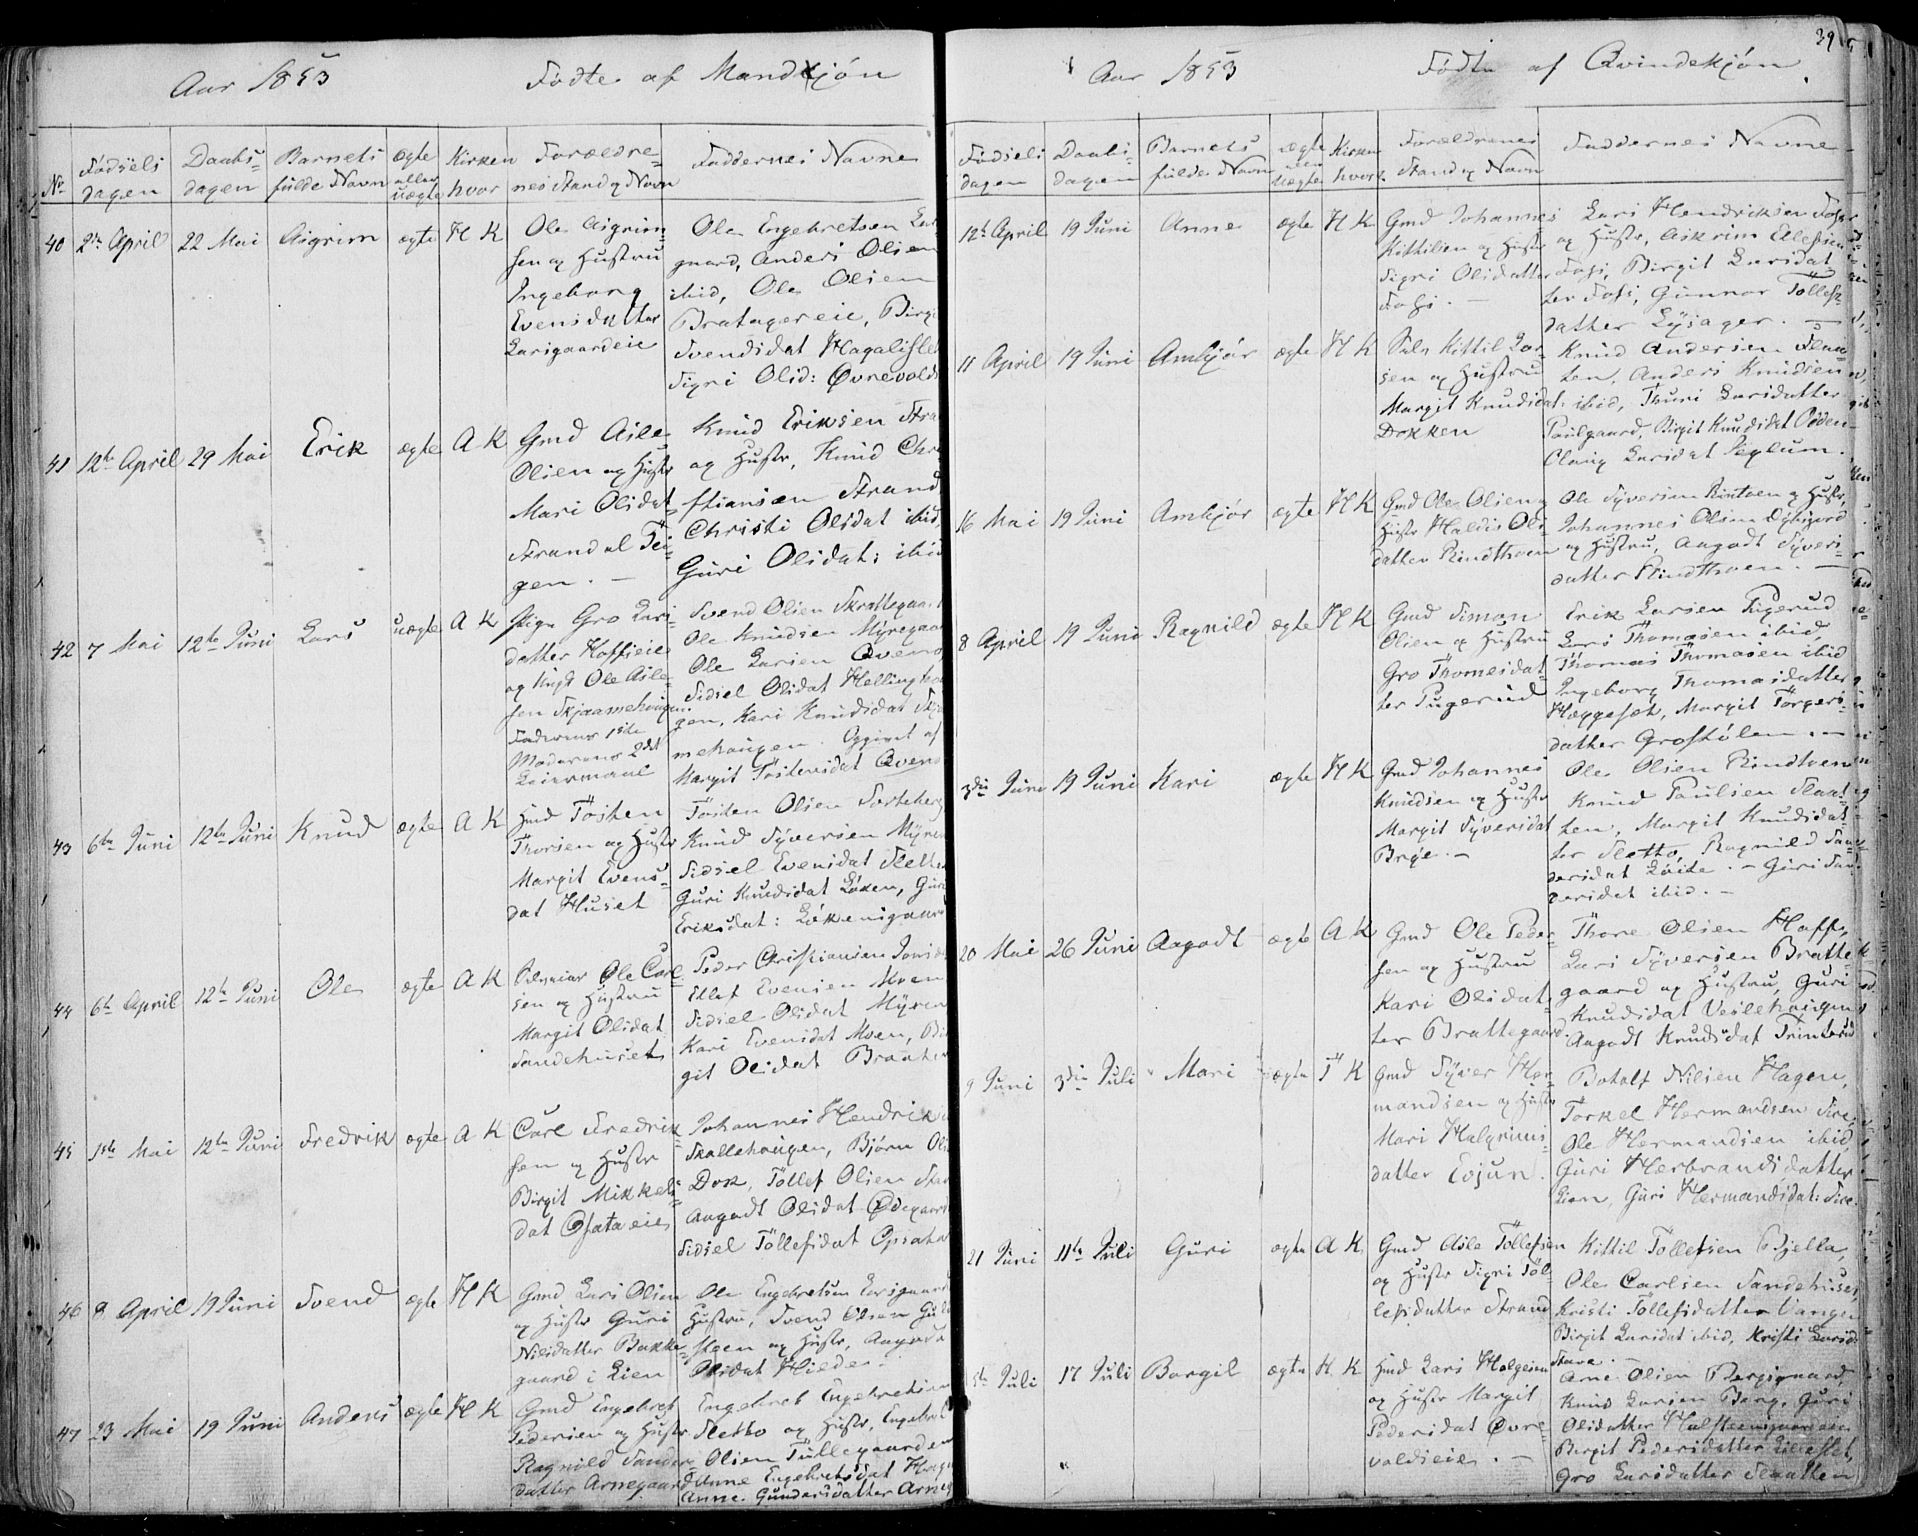 Aar 1853 Fødte af Mandkjøn
No Fødsels dagen Daabs- dagen Barnets fulde Navn ægte eller uægte Kirken hvor Forældre- nes Stand og Navn Faddernes Navne
40 2den April 22 Mai Asgrim ægte H K
Ole Asgrim-
sen og Hustru
Ingeborg
Evensdatter
Larsgaardeie
Ole Engebretsen Lars
gaard, Anders Olsen
ibid, Ole Olsen
Bratagereie, Birgi
Svendsdat Hagalislet
Sigri Olsd: Øvrevolds
41 12te April 29 Mai Erik ægte A K
Gmd Asle
Olsen og Hustr
Mari Olsdat
Strand al Tei-
gen. —
Knud Eriksen Stra
og Hustr, Knud Chr
stiansen Strand
Christi Olsdat ibid
Guri Olsdat: ibid
42 7 Mai 12te Juni Lars uægte A K
Pige Gro Lars
datter Hoffseie
og Ungk Ole Asle-
sen Skjærmehougen
Faderens 1ste
Moderens 2det
Leiermaal
Svend Olsen Skrattegaar
Ole Knudsen Myregaar
Ole Larsen Qveno
Sidsel Olsdat Hellinghou
gen, Kari Knudsdat Skj
mehaugen. Opgivet af
Margit Tostensdat Qveno
43 6te Juni 12te Juni Knud ægte A K
Hmd Tosten
Thorsen og Hustr
Margit Evens-
dat Huset
Tosten Olsen Sorteberg
Knud Syversen Myren
Sidsel Evensdat Slette
Guri Knudsdat Løken, Guri
Eriksdat: Løkensgaard
44 6te April 12te Juni Ole ægte A K
Ole Carl
sen og Hustru
Margit Olsdat
Sandehuset
Peder Christiansen
Ellef Evensen Moen
Sidsel Olsdat Myren
Kari Evensdat Moen, Bir
git Olsdat Braaten
45 1ste Mai 12te Juni Fredrik ægte A K
Carl Fredrik
sen og Hustr
Birgit Mikkels
dat Opsataeie
Johannes Hendrik
Skallehougen, Bjørn Ols
Dok, Tollef Olsen
Aagodt Olsdat Ødegaar
Sidsel Tollefsdat Opsata
46 8 April 19 Juni Svend ægte H K
Gmd Lars Olsen
og Hustr Guri
Nilsdatter Bakke
gaard i Lien
Ole Engebretsen Larsgaard
Hustru, Svend Olsen
steen og Hustr, Aagodt
Olsdat Hilde.
47 23 Mai 19 Juni Anders ægte H K
Gmd Engebret
Pedersen og Hustr
Ragnild Sander-
datter Arnegaard
Engebret Engebretsen
Sletto og Hustr, Engebret
Olsen Tullegaarden
Anne Engebretsdat
Anne Gundersdatter Arne

39
Aar 1853 Fødte af Qvindekjøn
Fødsels dagen Daabs- dagen Barnets fulde Navn ægte eller uægte Kirken hvor Forældrenes Stand og Navn Faddernes Navne
12te April 19 Juni Anne ægte H K
Gmd Johannes
Kittilsen og Hustr
Sigri Olsdatter
Foss. —
Lars Hendriksen Foss
og Hustr, Askrim Ellefsen
Foss, Birgit Larsdat
ter Foss, Gunnor Tollefs
datter Lysager. —
11 April 19 Juni Ambjør ægte H K
Kittil Lar-
sen og Hustru
Margit Knudsdat:
Dokken
Knud Andersen Slaa
ten, Anders Knudsen
ibid, Thuri Larsdatter
Poulgaard, Birgit Knudsdat
Larsdat
16 Mai 19 Juni Ambjør ægte H K
Gmd Ole Olsen og
Hustr Haldis Ols
datter Rindthoen
Ole Syversen Rintoen og Hustr,
Johannes Olsen
og Hustru, Aagodt Syvers-
datter Rindthoen. —
8 April 19 Juni Ragnild ægte H K
Gmd Simon
Olsen og Hustru
Gro Thomesdat-
ter Pugerud
Erik Larsen Pugerud
Lars Thomasen ibid,
Thomas Thomasen ibid
Ingeborg Thomasdatter
Haggeset, Margit Torgers-
datter Grostølen. —
3die Juni 19 Juni Kari ægte H K
Gmd Johannes
Knudsen og Hustr
Margit Syversdat
Brøie. —
Ole Olsen Rindtoen
Knud Poulsen Slaat-
ten, Margit Knudsdat-
ter Sletto, Ragnild San-
dersdat Løite. — Guri San-
dersdat ibid. —
20 Mai 26 Juni Aagodt ægte A K
Gmd Ole Peder-
sen og Hustru
Kari Olsdat-
ter Brattegaard.
Thore Olsen Hoff,
Lars Syversen Bratte
gaard og Hustru, Guri
Knudsdat Veslehougen
Aagodt Knudsdat Trinterud
9 Juni 3die Juli Mari ægte T K
Gmd Syver Her-
mandsen og Hustr
Mari Halgrims-
datter Evjun.
Botolf Nilsen Hagen,
Torkel Hermandsen Sire,
Ole Hermandsen ibid,
Guri Herbrandsdatter
Lien, Guri Hermandsdat: Sire
21 Juni 11te Juli Guri ægte A K
Gmd Asle Tollefsen
og Hustr Sigri Tol-
lefsdatter Strand
Kittil Tollefsen Bjella,
Ole Carlsen Sandehuset,
Kristi Tollefsdatter Vangen
Birgit Larsdat ibid, Kristi Larsd
Stave. —
5te Juli 17 Juli Borgil ægte H K
Hmd Lars Halgrims
og Hustr Margit
Pedersdat Øvre-
voldseie. —
Arne Olsen Bergsgaard,
Knud Larsen Berg, Guri
Olsdatter Halsteensgaardeie
Birgit Pedersdatter Lilleslet,
Gro Larsdatter Slaatten